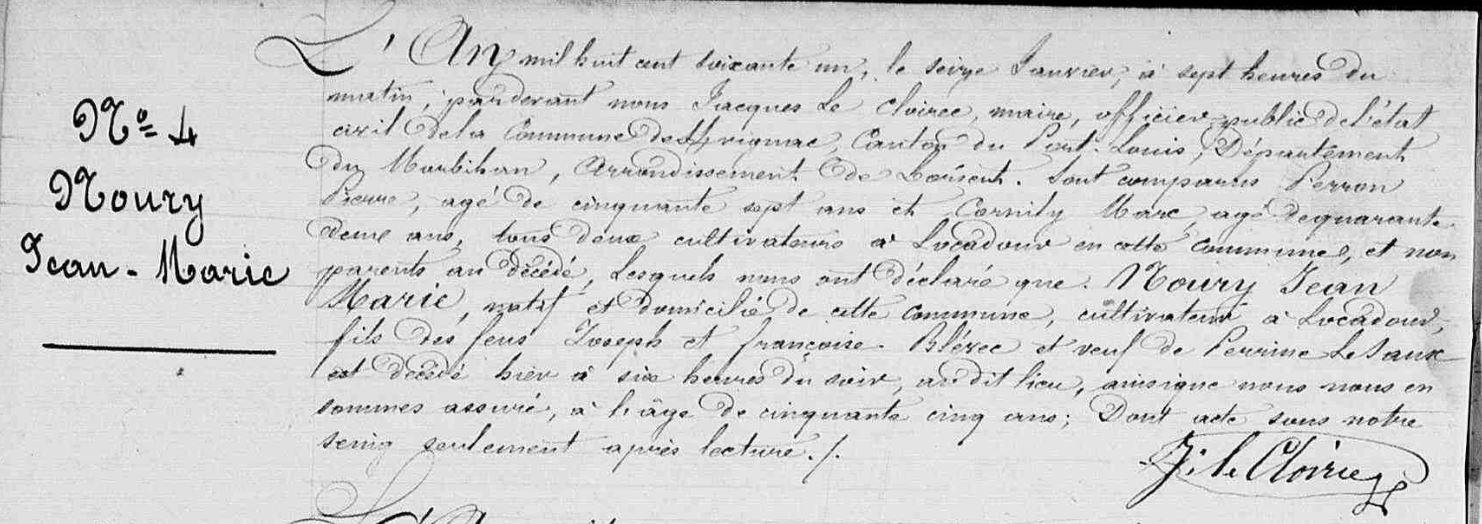 N° 4
Noury
Jean-Marie
L'An mil huit cent soixante un, le seize Janvier, à sept heures du
matin, pardevant nous Jacques Le Cloirec, maire, officier public de l'état
civil de la Commune de Merlévenez, Canton du Port-Louis, Département
du Morbihan, Arrondissement de Lorient. Sont comparus Perron
Pierre, agé de cinquante sept ans et Cornily Marc, agé de quarante
deux ans, tous deux cultivateurs à Locadour en cette commune, et non
parents au décédé, Lesquels nous ont déclaré que Noury Jean
Marie, natif et domicilié de cette commune, cultivateur à Locadour,
fils des feus Joseph et françoise Blévec et veuf de Perrine Le Saux
est décédé hier à six heures du soir, au dit lieu, ainsi que nous nous en
sommes assuré, à l'âge de cinquante cinq ans; Dont acte sous notre
seing seulement après lecture./.
J. le Cloirec